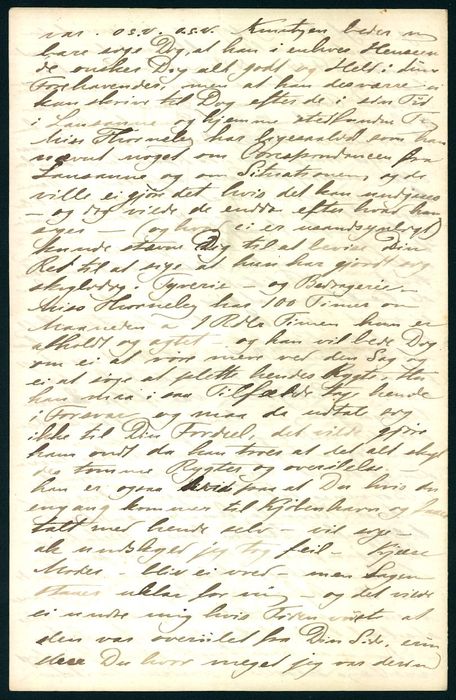 var. o.s.v. o.s.v. Knudtzen beder mig
bare sige Dig, at han i enhver Henseen-
de ønsker Dig alt godt og Held i dine
Forehavender, men at han desværre ei
kan skrive til Dig efter de i sin Tid
i Lausanne og hjemme stedfundne
Miss Thorneley har ligesaalidt som han
nævnt noget om Correspondancen fra
Lausanne og om Situationen, og de
ville ei gjøre det hvis det kan undgaaes
– og det vilde de endda efter hvad han
siger – (og hvad ei er usandsynligt)
kunde stævne Dig til at bevise Din
Ret til at sige at hun har gjort sig
skyldig i Tyverie – og Bedragerie –
Miss Thorneley har 100 Timer om
Maaneden a 1 Rdlr Timen hun er
afholdt og agtet – og han vil bede Dig
om ei at røre mere ved den Sag og
ei at søge at plette hendes Rygte. Thi
han maa i saa Tilfælde tage hende
i Forsvar og maa da udtale sig
ikke til Din Fordeel, det vilde gjøre
ham ondt da han troer at det alt
tomme Rygter og overilelse. –
han er ogsaa vis paa at Du hvis du
engang kommer til Kjøbenhavn og faaer
talt med hende selv – vil sige –
ak undskyld jeg tog feil – Kjære
Moder – bliv ei vred – men Sagen
staaer uklar for mig – og det vilde
ei undre mig hvis Tiden viiste at
den var overilet fra Din Side, erin-
drer Du hvor meget jeg var derimod